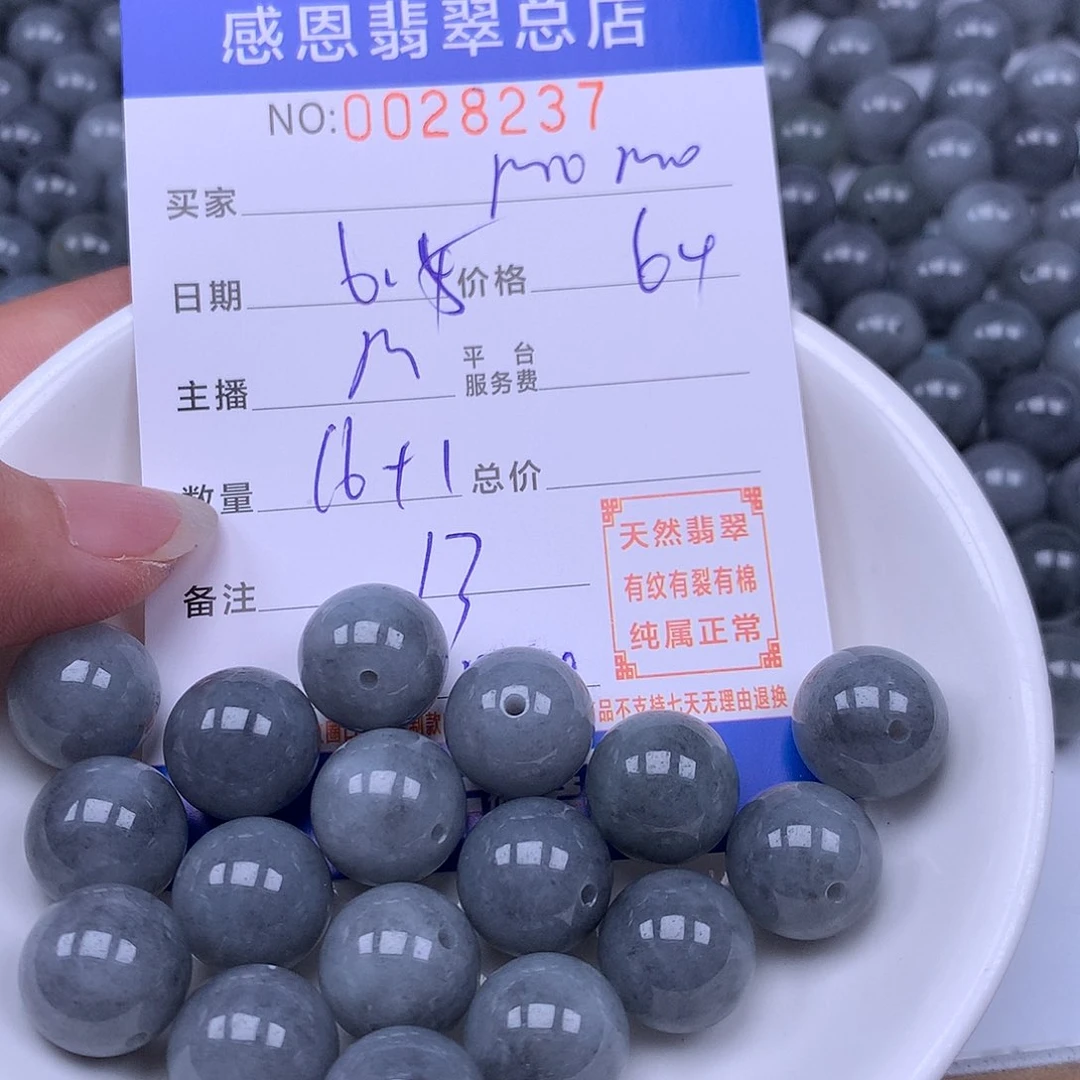 感恩翡翠总店
NO:0028237
买家 momo
日期 6. 价格 64
主播 平台服务费
数量 16+1 总价
备注 13
天然翡翠
有纹有裂有棉
纯属正常
品不支持七天无理由退换